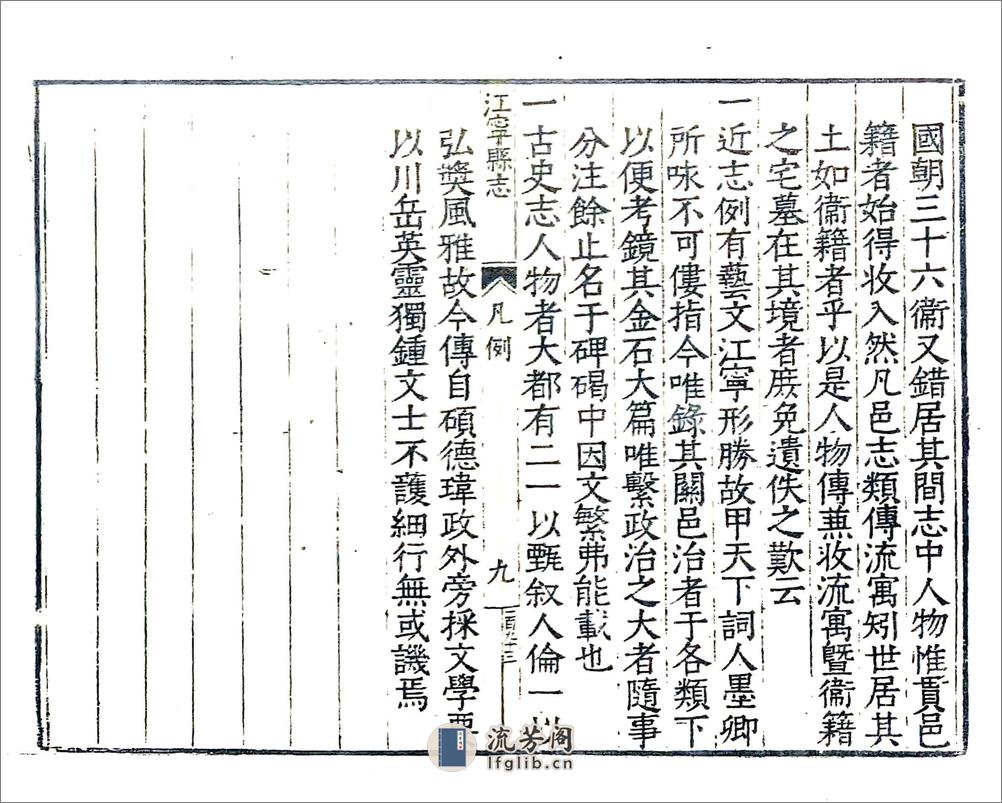 國朝三十六衞又錯居其間志中人物惟貫邑
籍者始得收入然凡邑志類傳流寓矧世居其
土如衞籍者乎以是人物傳兼收流寓曁衞籍
之宅墓在其境者庶免遺佚之歎云
一近志例有藝文江寧形勝故甲天下詞人墨卿
所咏不可僂指今唯錄其關邑治者于各類下
以便考鏡其金石大篇唯繫政治之大者隨事
分注餘止名于碑碣中因文繁弗能載也
一古史志人物者大都有二一以甄叙人倫一以
江寧縣志
凡例
九
二百九十三
弘奬風雅故今傳自碩德瑋政外旁採文學要
以川岳英靈獨鍾文士不護細行無或譏焉
流芳阁
lfglib.cn